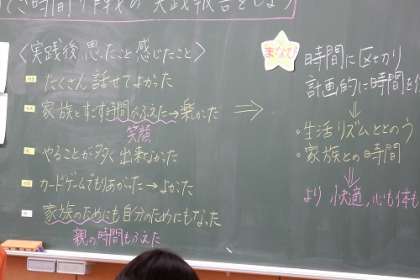 時間 作戦の実践報告をしよう
〈実践後 思ったこと 感じたこと〉
たくさん話せてよかった
家族とすごす時間がふえた→楽かった
笑顔
やることが多く出来なかった
カードゲームでもりあがった→よかった
家族のためにも自分のためにもなった
親の時間もふえた
⇒
まなび
時間に区切り
計画的に時間を
↓
・生活リズムととのう
・家族との時間
↓
より 快適,心も体も